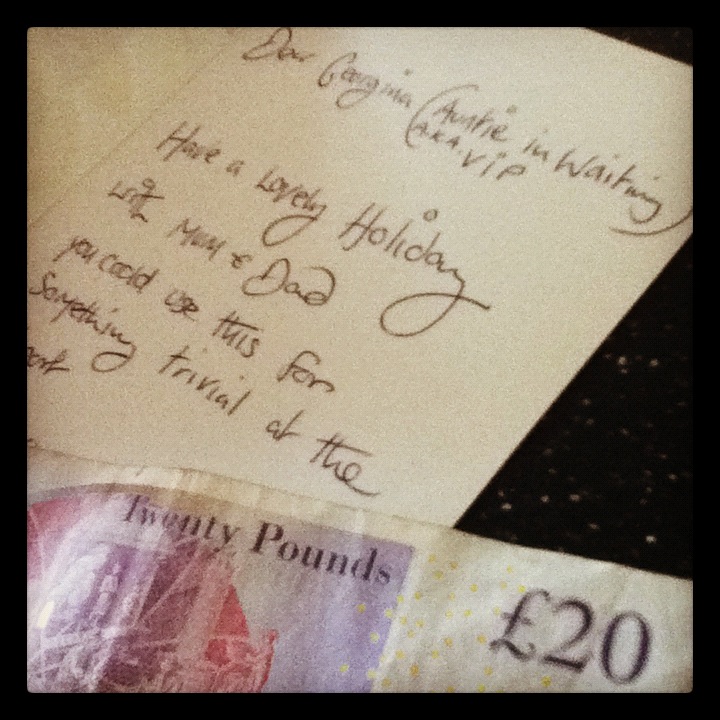 Dear Georgina (Auntie in Waiting)
A.K.A. VIP
Have a Lovely Holiday
with Mum & Dad
you could use this for
Something trivial at the
Twenty Pounds
£20